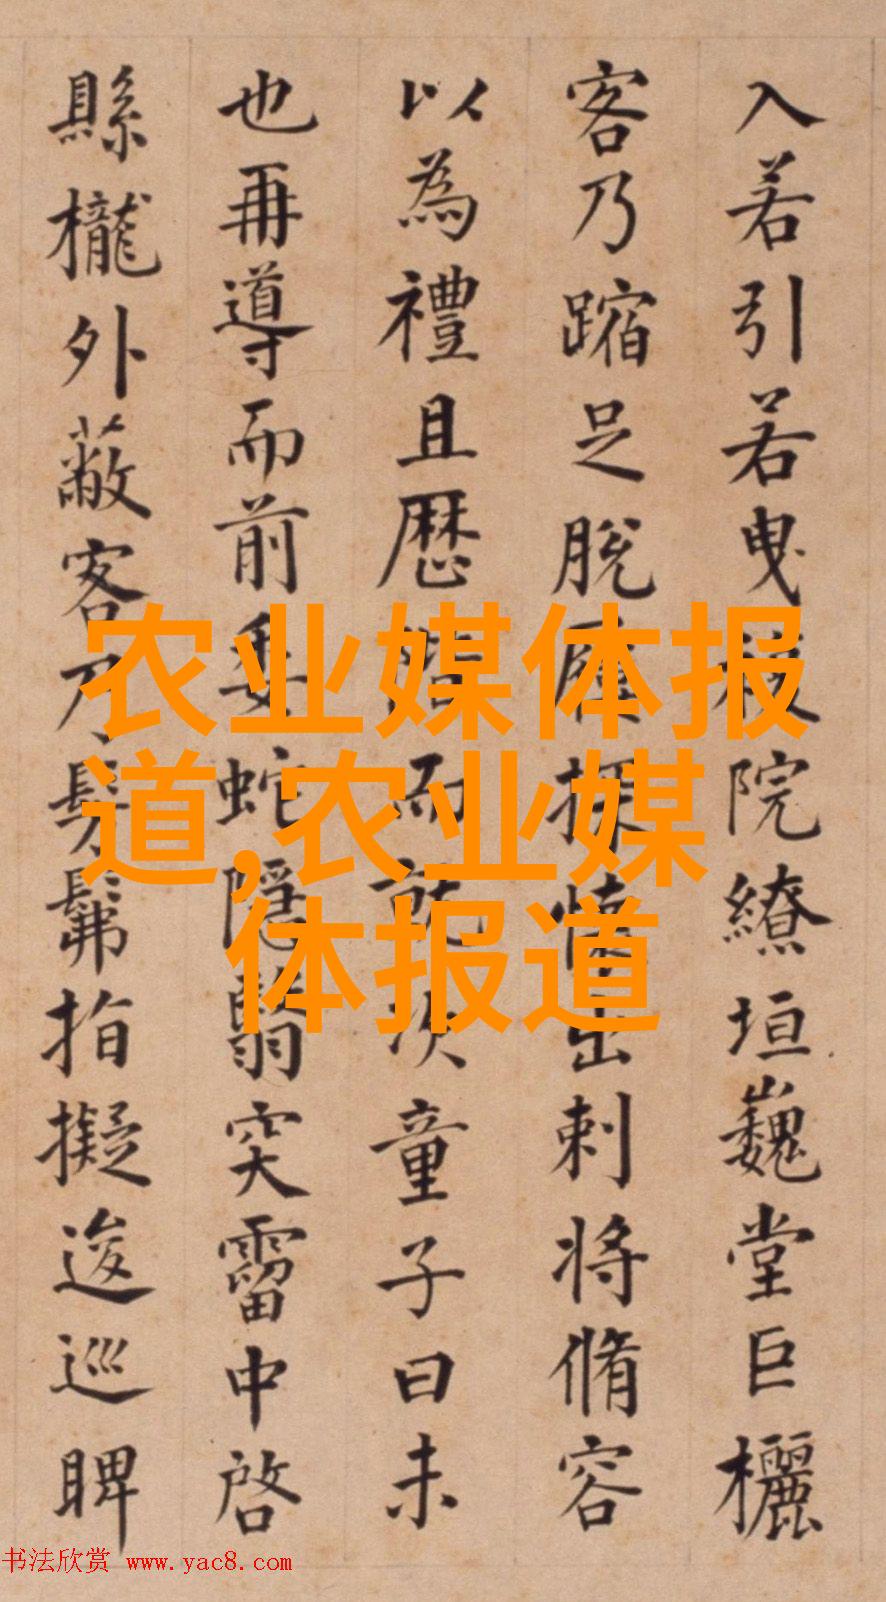 入若引若曳 院繚垣巍堂巨欐
客乃蹜足脫 探懷出刺將脩容
以為禮且歷階而就次童子曰未
也再導而前委蛇隱翳突霤中啓
縣櫳外蔽客乃髣髴指擬逡巡睥
农业媒体报
道,农业媒
体报道
书法欣赏 www.yac8.com